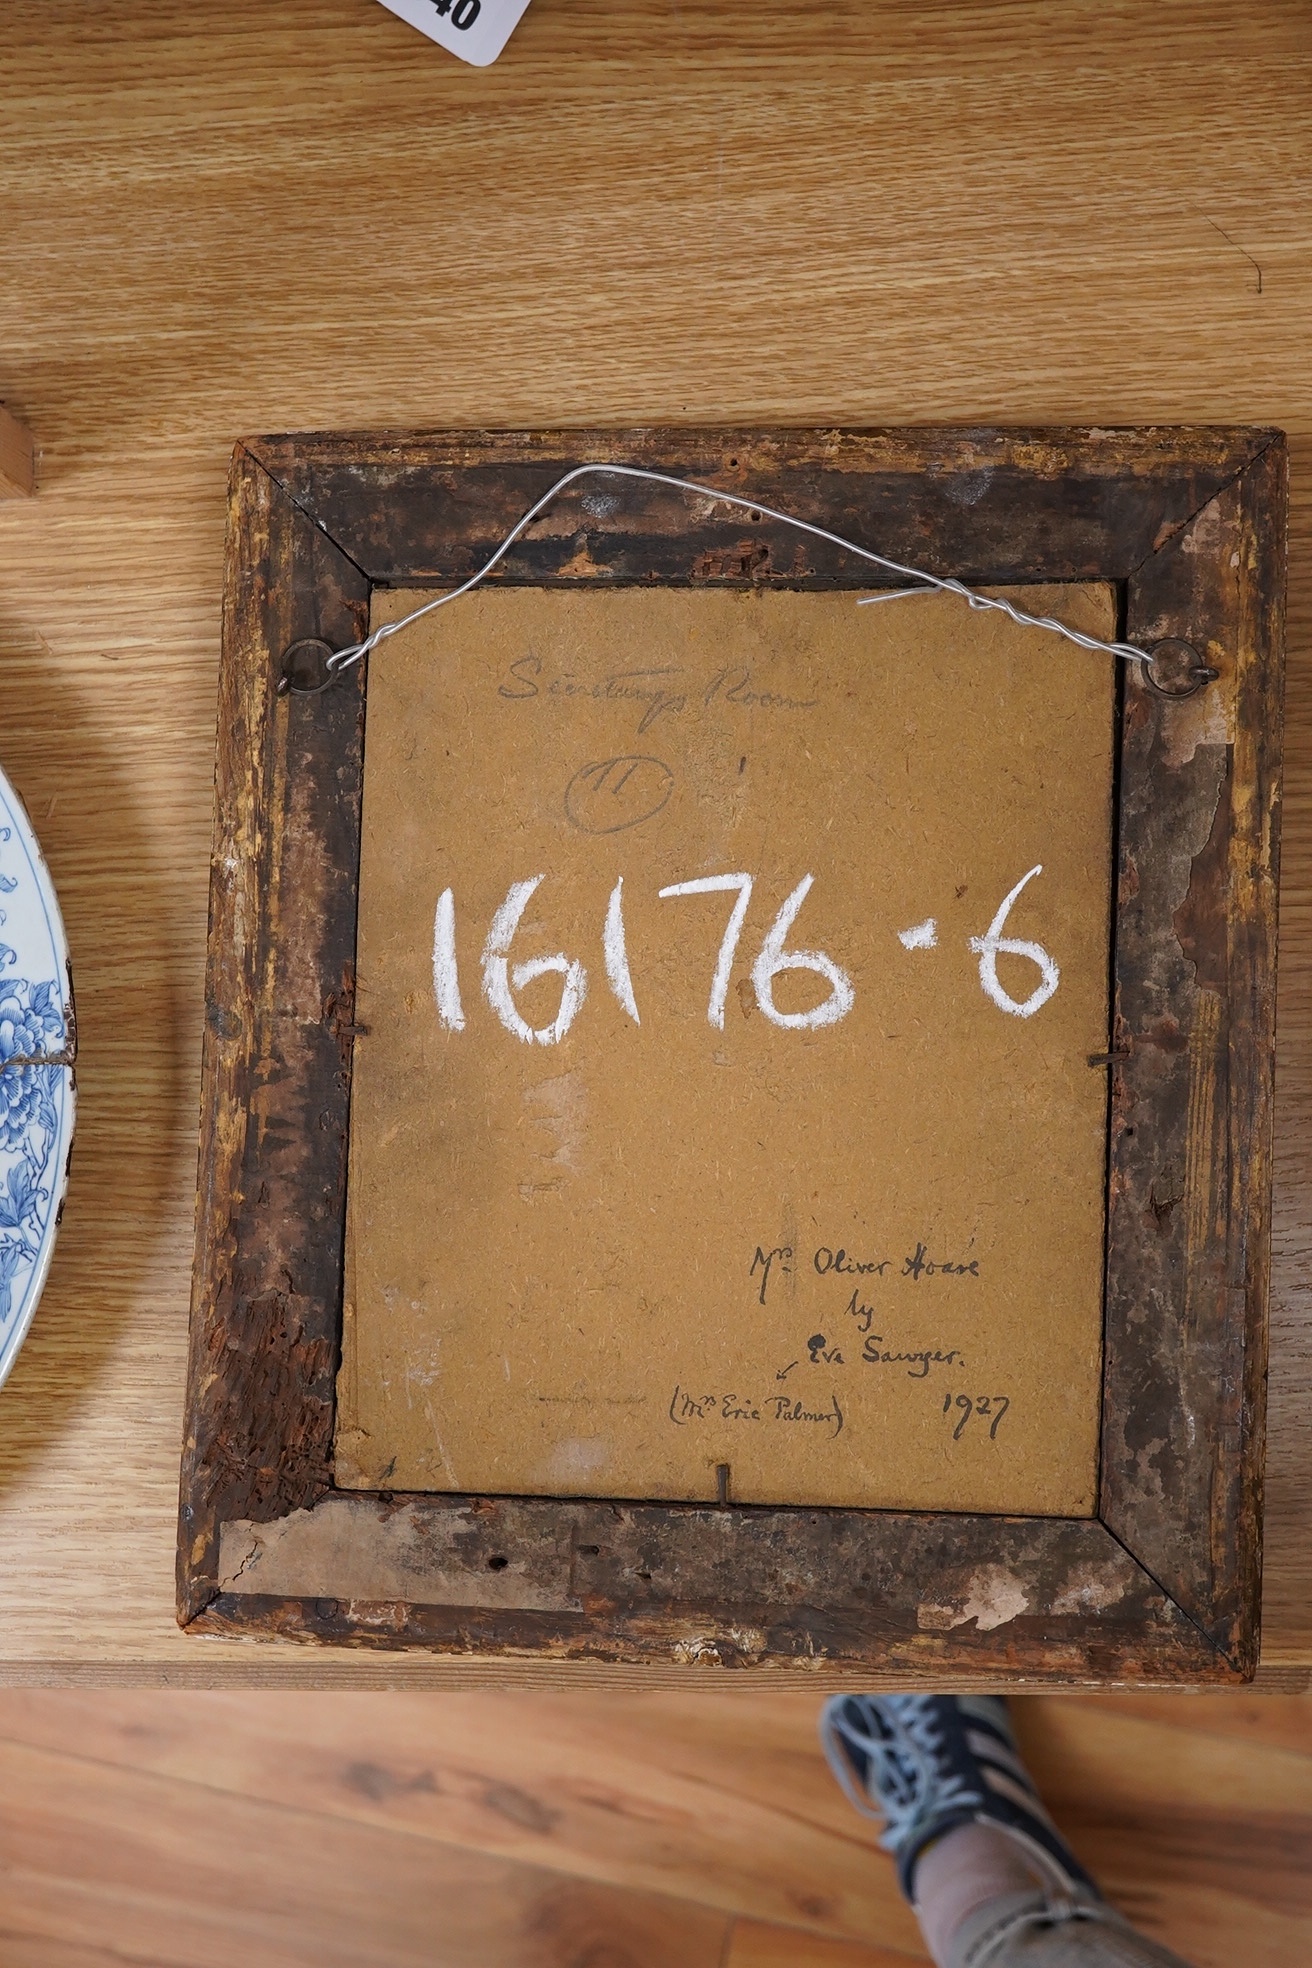 40
Secretary's Room
11
16176-6
Mrs Oliver Hoare
by
Eve Sawyer.
(Mrs Eric Palmer) 1927